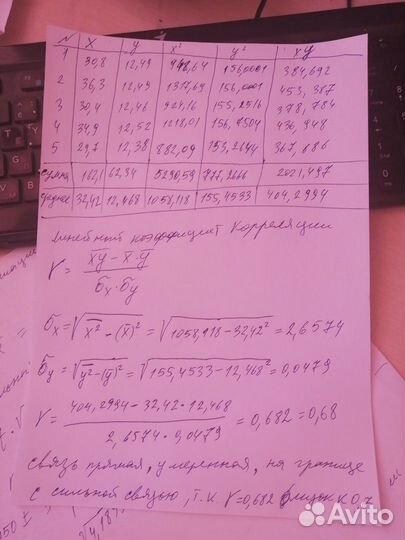 N X y x² y² xy
1 30,8 12,49 948,64 156,0001 384,692
2 36,3 12,49 1317,69 156,0001 453,387
3 30,4 12,46 924,16 155,2516 378,784
4 34,9 12,52 1218,01 156,7504 436,948
5 29,7 12,38 882,09 153,2644 367,686
сумма 162,1 62,34 5290,59 777,2666 2021,497
среднее 32,42 12,468 1058,118 155,4533 404,2994
линейный коэффициент корреляции
r = (x̅y̅ - x̅·y̅) / (σx·σy)
σx = √(x̅² - (x̅)²) = √(1058,118 - 32,42²) = 2,6574
σy = √(y̅² - (y̅)²) = √(155,4533 - 12,468²) = 0,0479
r = (404,2994 - 32,42·12,468) / (2,6574·0,0479) = 0,682 = 0,68
связь прямая, умеренная, на границе
с сильной связью, т.к r=0,682 близок к 0,7
Avito